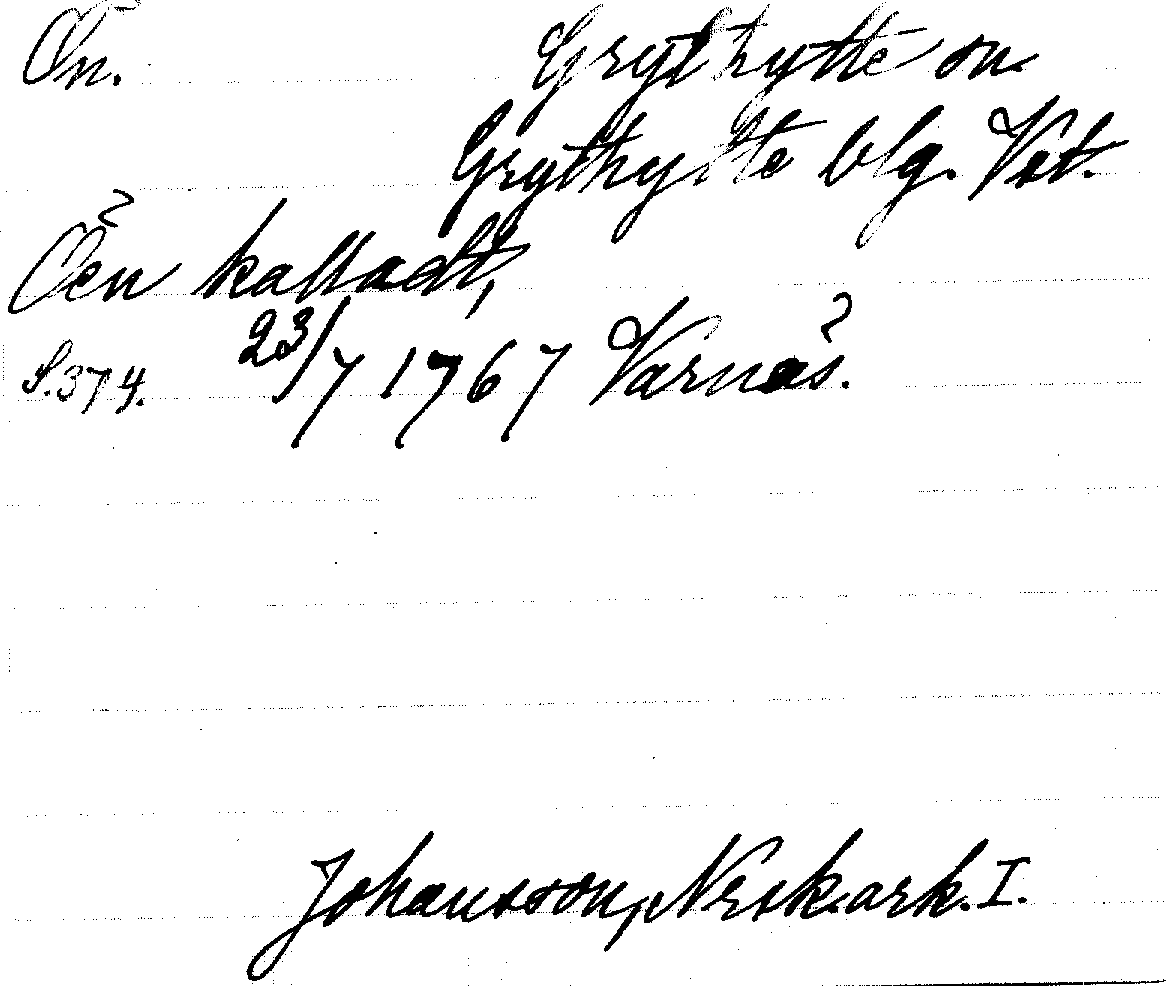 Ön. Grythytte sn
Grythytte blg. Vstl.
Öen kalladt,
S.374. 23/7 1767 Varnäs.
Johansson, Norskark. I.